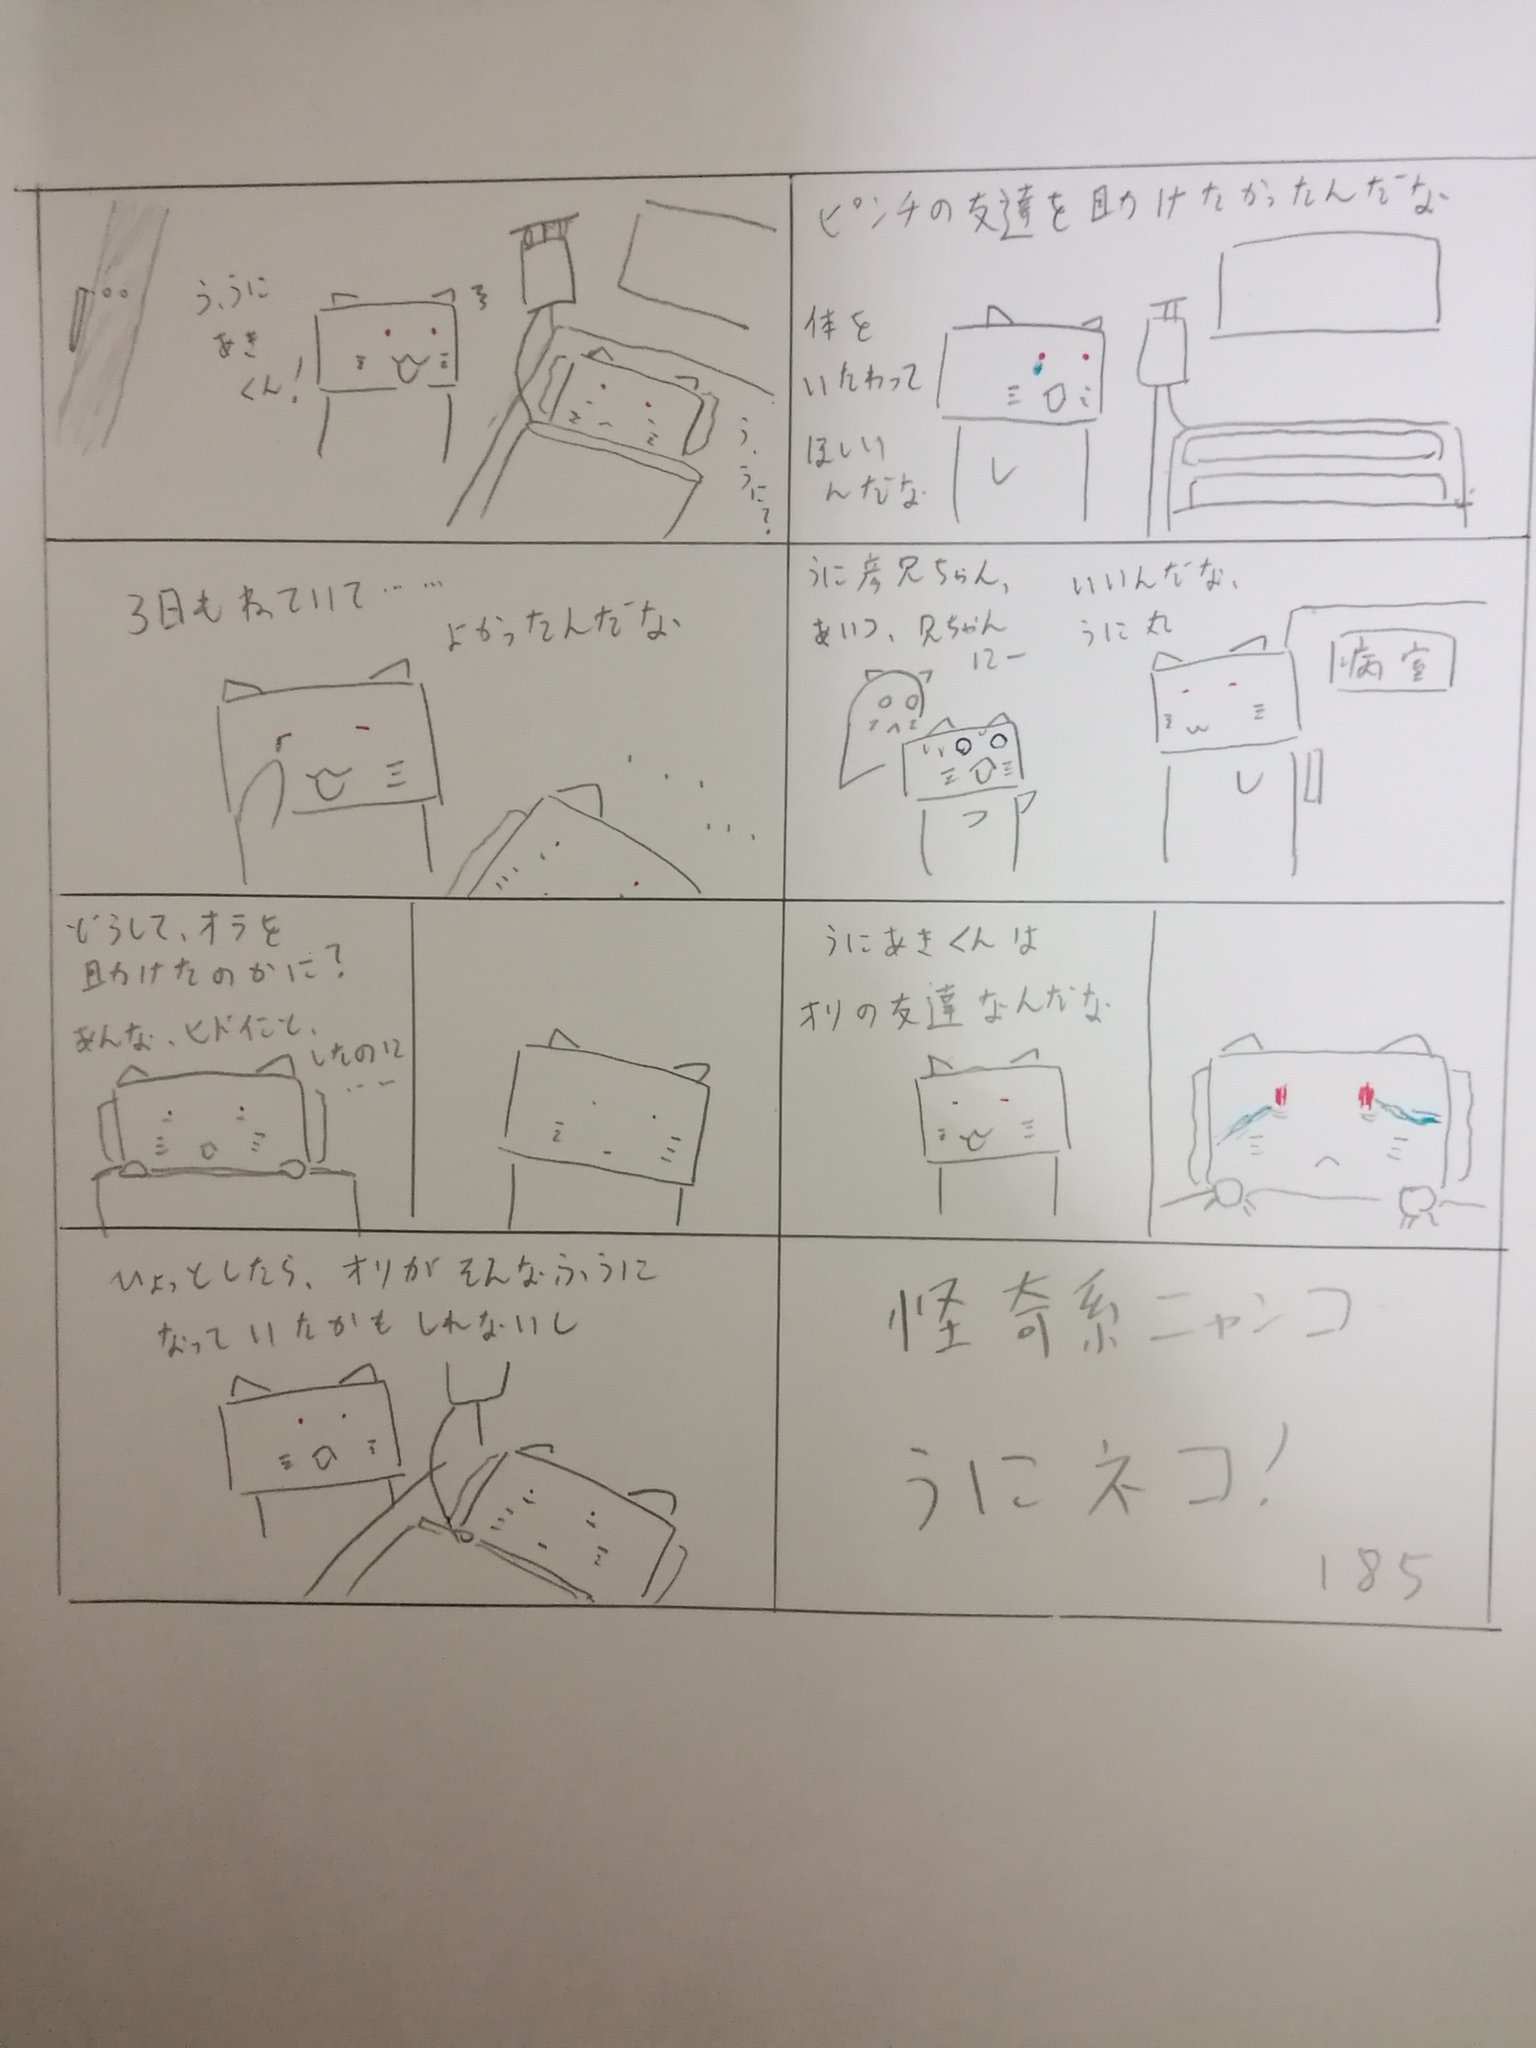 う、うに
あき
くん!
う、
うに?
3日もねていて……
よかったんだな
どうして、オラを
助けたのかに?
あんな、ヒドイこと、
したのに
……
ひょっとしたら、オリがそんなふうに
なっていたかもしれないし
ピンチの友達を助けたかったんだな
体を
いたわって
ほしい
んだな
うに彦兄ちゃん、
あいつ、兄ちゃん
にー
いいんだな、
うに丸
病室
うにあきくんは
オリの友達なんだな
怪奇系ニャンコ
うにネコ!
185